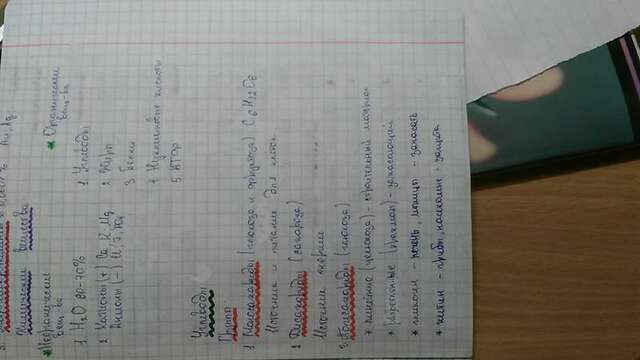 Химические вещества
* Неорганические вещ-ва
1. H2O 80-70%
2. Катионы (+) Ca, K, Mg
Анионы (-)
* Органические вещ-ва
1. Углеводы
2. Жиры
3. Белки
4. Нуклеиновые кислоты
5. АТФ
Углеводы
1. Моносахариды (глюкоза и фруктоза) C6H12O6
Источник и питание для клеток
2. Дисахариды (сахароза)
Источник энергии
3. Полисахариды
* растительные (крахмал) - запасающий
* гликоген - печень, мышцы - запасать
* хитин - грибы, насекомые - защита